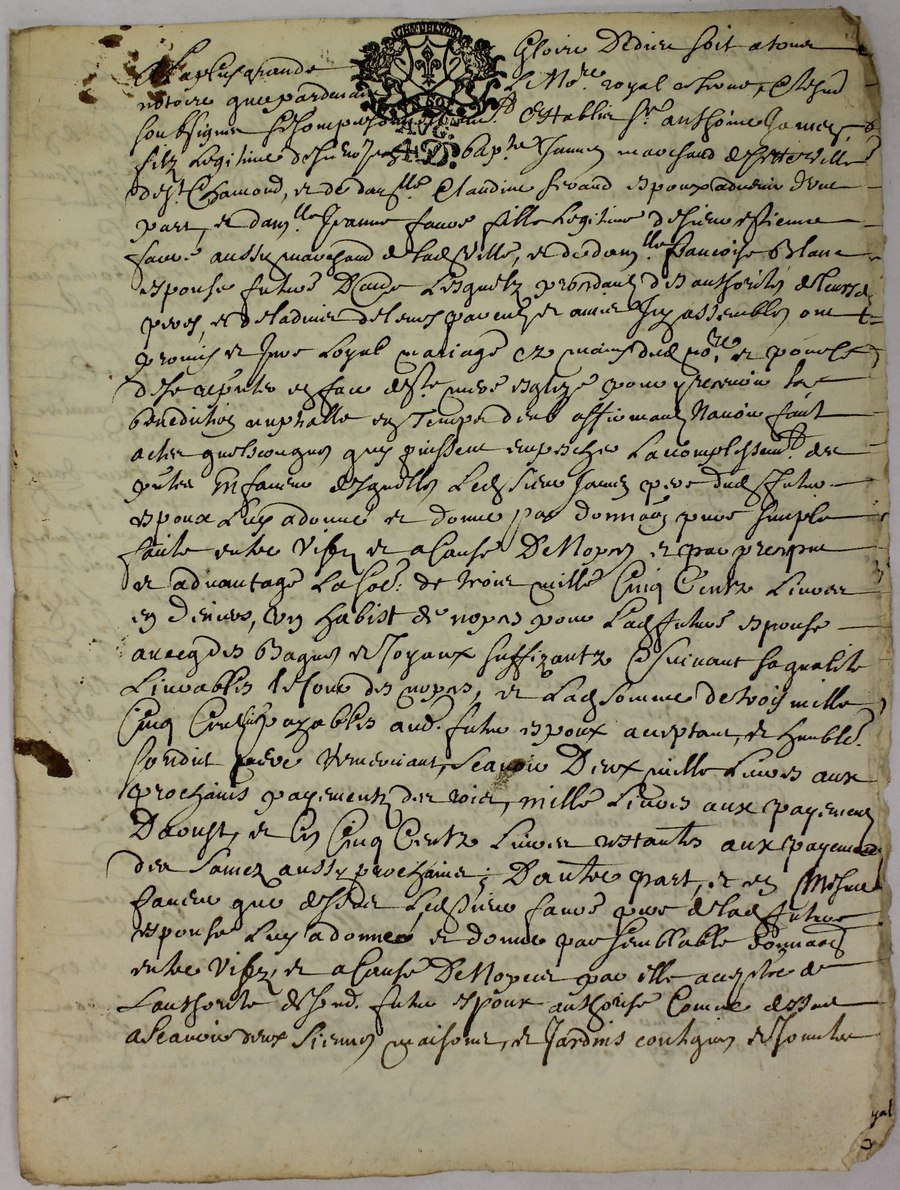 A la plus grande Gloire De dieu soit a tous
notoire que pardevant Le No.re royal a
soubsigne et establis S.r anthoine James
filz Legitime de sieur Jean bap.te James marchand de cette ville
de S.t Chamond, et de dam.lle Claudine feraud espoux advenir d'une
part, et dam.lle Jeanne faure fille Legitime de sieur estienne
faure aussy marchand de lad. ville, et de dam.lle francoise Blanc
espouse future D'autre Lesquelz procedantz des authorités de leursd.
peres, et de l'advis de leurs parentz et amis Icy assemblés ont
promis et Jure Loyal mariage ez mains dud. no.re et pour le
de se en face de s.te mere esglize pour y recevoir la
benediction nuptialle en Temps deub affirmantz N'avoir faict
actes quelsconques quy puissent empescher L'acomplissem.t des
p.ntes En faveur desquelles Led. Sieur James pere dud. futur
espoux Luy a donné et donne par donnaon pure simple
faite entre Vifz et a Cause De Nopces et par preciput
et advantage La So.e de trois mille Cinq Centz Livres
en deniers, un habist de nopces pour Lad. future espouse
avecq des Bagues et Joyaux suffizantz et suivant sa qualité
Livrables le jour des nopces, et Lad. somme de trois mille
Cinq Centz payables aud. futur espoux aceptant, et humble.t
sondit pere remerciant, scavoir Deux mille Livres aux
prochains payementz des rois, mille Livres aux payementz
D'aoust, et les Cinq Centz Livres restantes aux payementz
des aussy prochains; D'autre part, et en Mesme
faveur que dessus Led. Sieur faure pere de lad. future
espouse Luy a donné et donne par semblable donnaon
entre Vifz, et a Cause De Nopces par elle aceptée de
L'authorité de sond. futur espoux authorisé Comme dessus
a scavoir deux siennes maisons, et Jardins contigus et Jointes